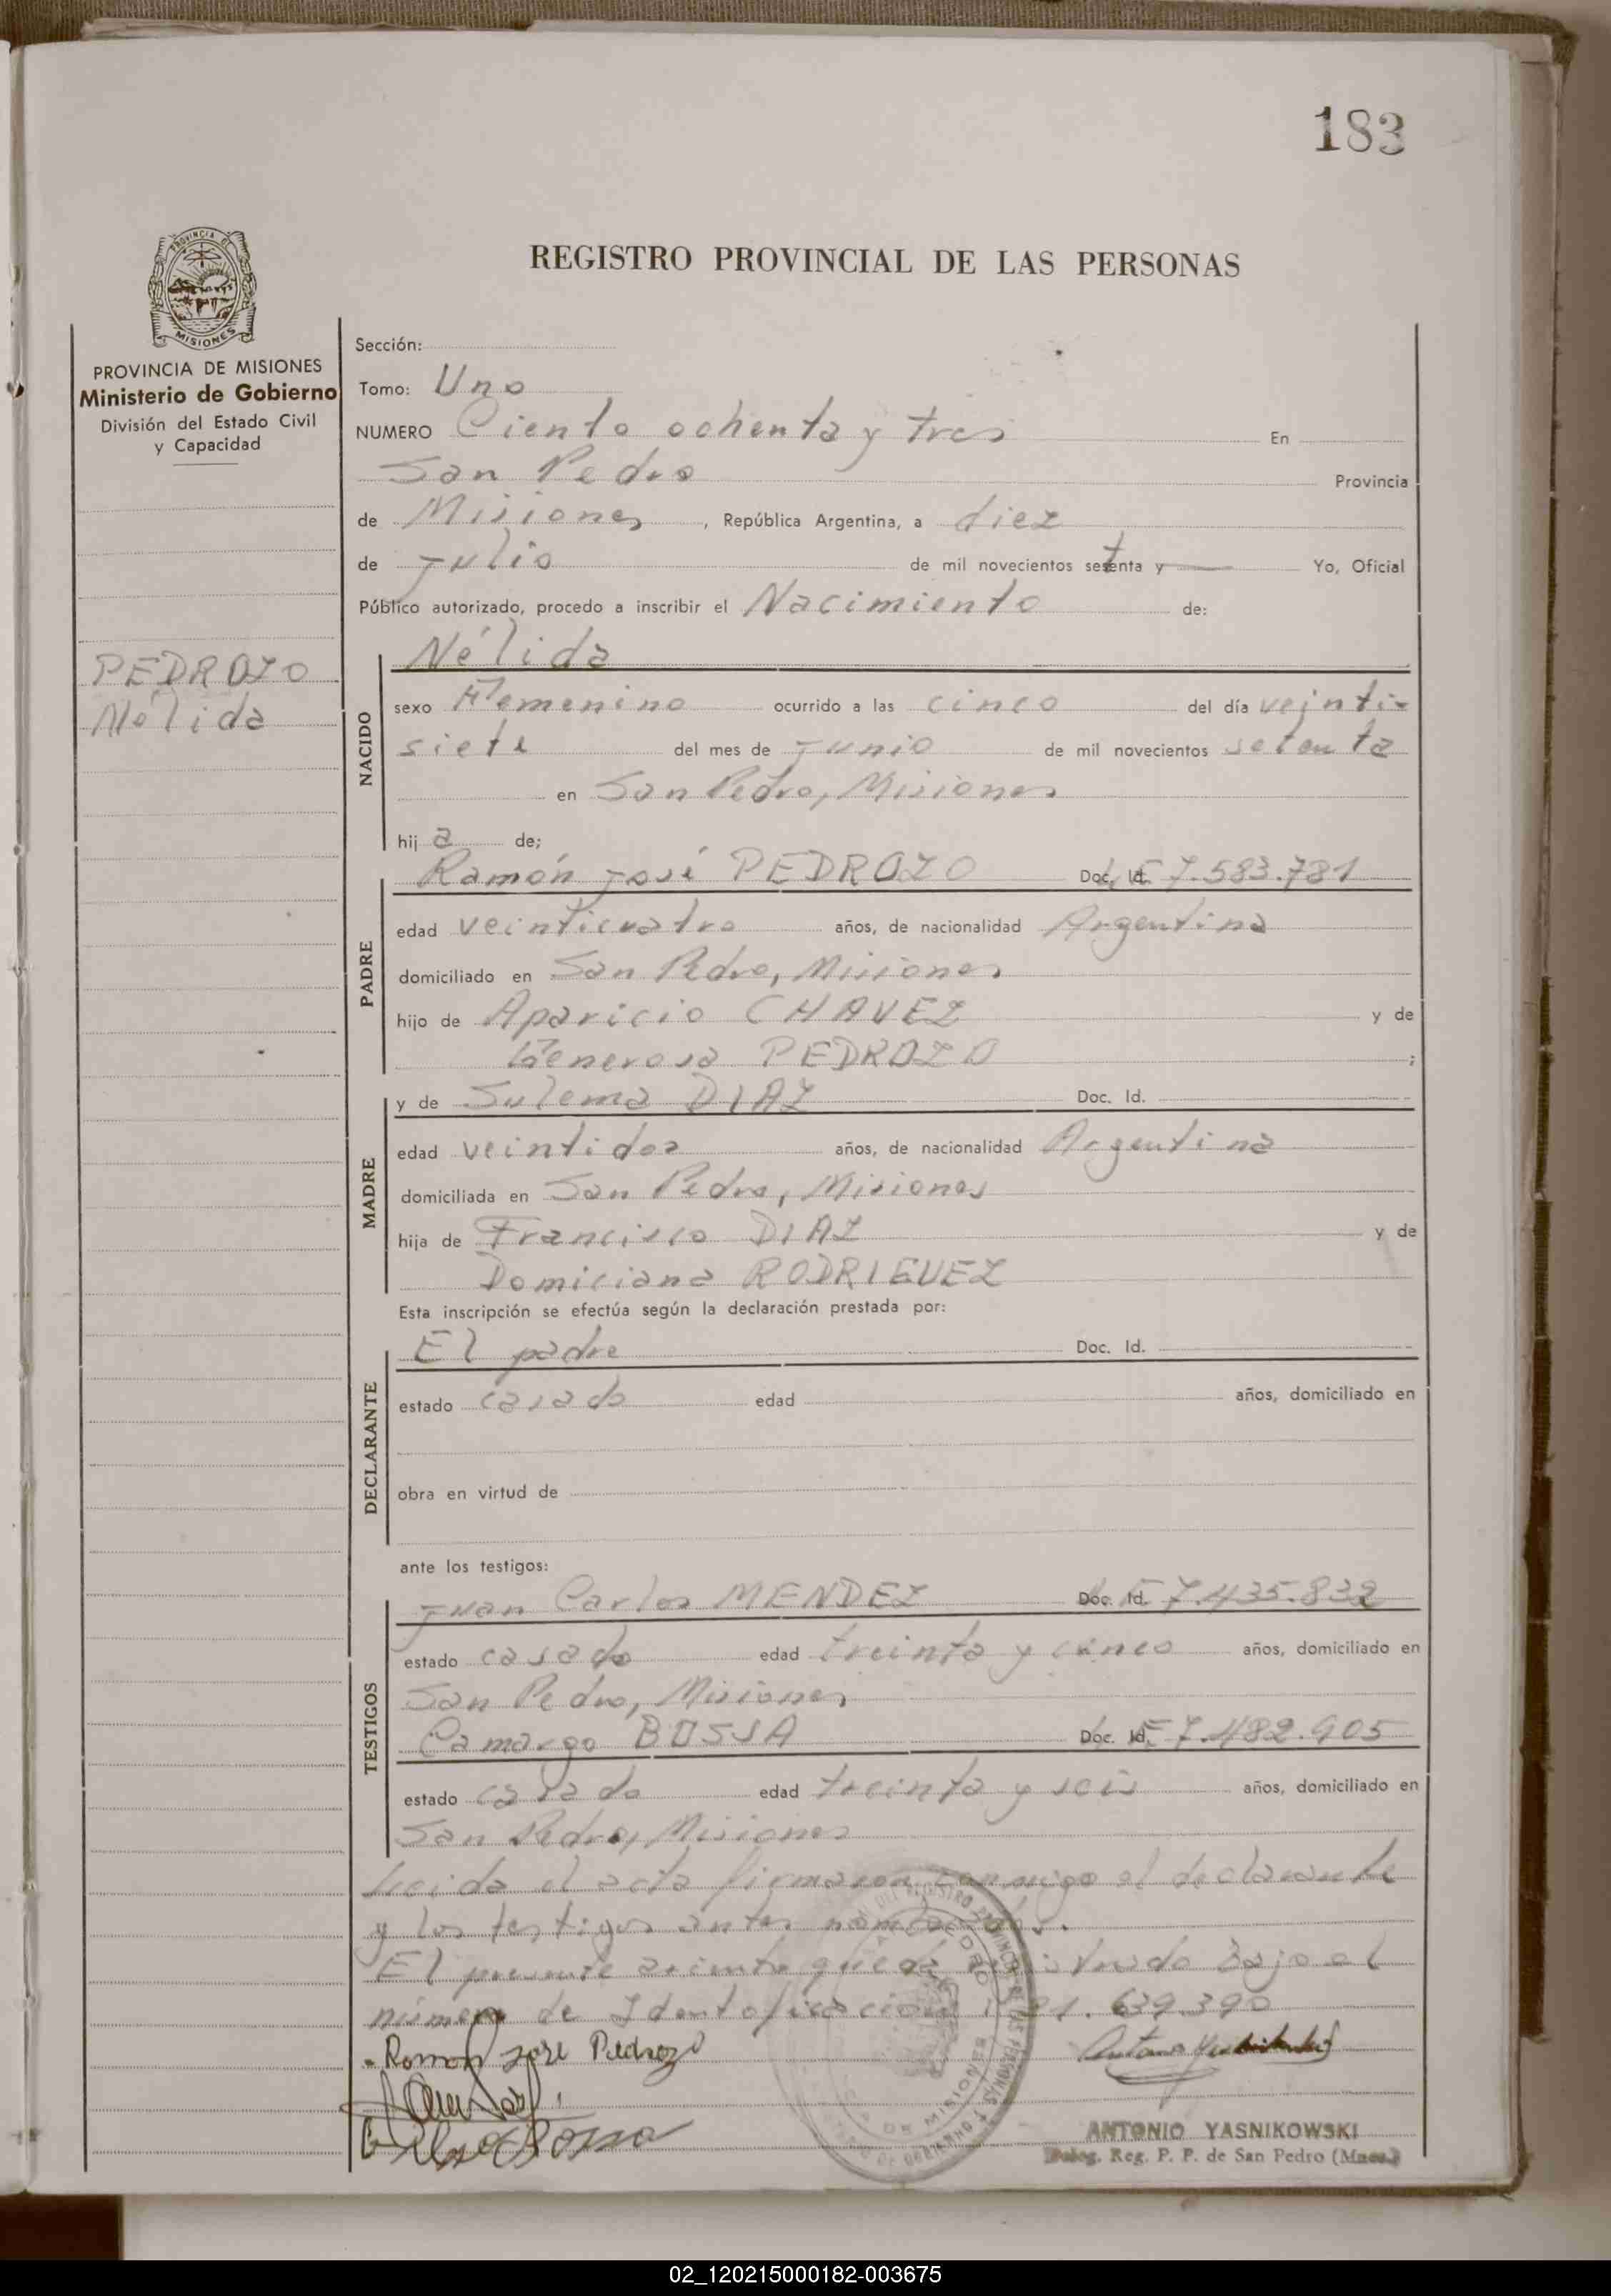 183
REGISTRO PROVINCIAL DE LAS PERSONAS
PROVINCIA DE MISIONES
PROVINCIA DE MISIONES
Ministerio de Gobierno
División del Estado Civil
y Capacidad
PEDROZO
Nélida
Sección:
Tomo: Uno
NUMERO Ciento ochenta y tres En
San Pedro Provincia
de Misiones, República Argentina, a diez
de Julio de mil novecientos setenta y — Yo, Oficial
Público autorizado, procedo a inscribir el Nacimiento de:
Nélida
NACIDO
sexo Femenino ocurrido a las cinco del día veinti-
siete del mes de Junio de mil novecientos setenta
en San Pedro, Misiones
hija de;
Ramón José PEDROZO Doc. Id. 7.583.781
PADRE
edad veinticuatro años, de nacionalidad Argentina
domiciliado en San Pedro, Misiones
hijo de Aparicio CHAVEZ y de
Generosa PEDROZO ;
y de Sulema DIAZ Doc. Id.
MADRE
edad veintidos años, de nacionalidad Argentina
domiciliada en San Pedro, Misiones
hija de Francisco DIAZ y de
Domiciana RODRIGUEZ
Esta inscripción se efectúa según la declaración prestada por:
El padre Doc. Id.
DECLARANTE
estado casado edad años, domiciliado en
obra en virtud de
ante los testigos:
Juan Carlos MENDEZ Doc. Id. 7.435.832
TESTIGOS
estado casado edad treinta y cinco años, domiciliado en
San Pedro, Misiones
Camargo BOSSA Doc. Id. 7.482.905
estado casado edad treinta y seis años, domiciliado en
San Pedro, Misiones
Leida el acta firmaron conmigo el declarante
y los testigos antes nombrados.
El presente asiento queda registrado bajo el
número de Identificación 21.639.390
Ramon Jose Pedrozo
ANTONIO YASNIKOWSKI
Deleg. Reg. P. P. de San Pedro (Mnes.)
02_120215000182-003675